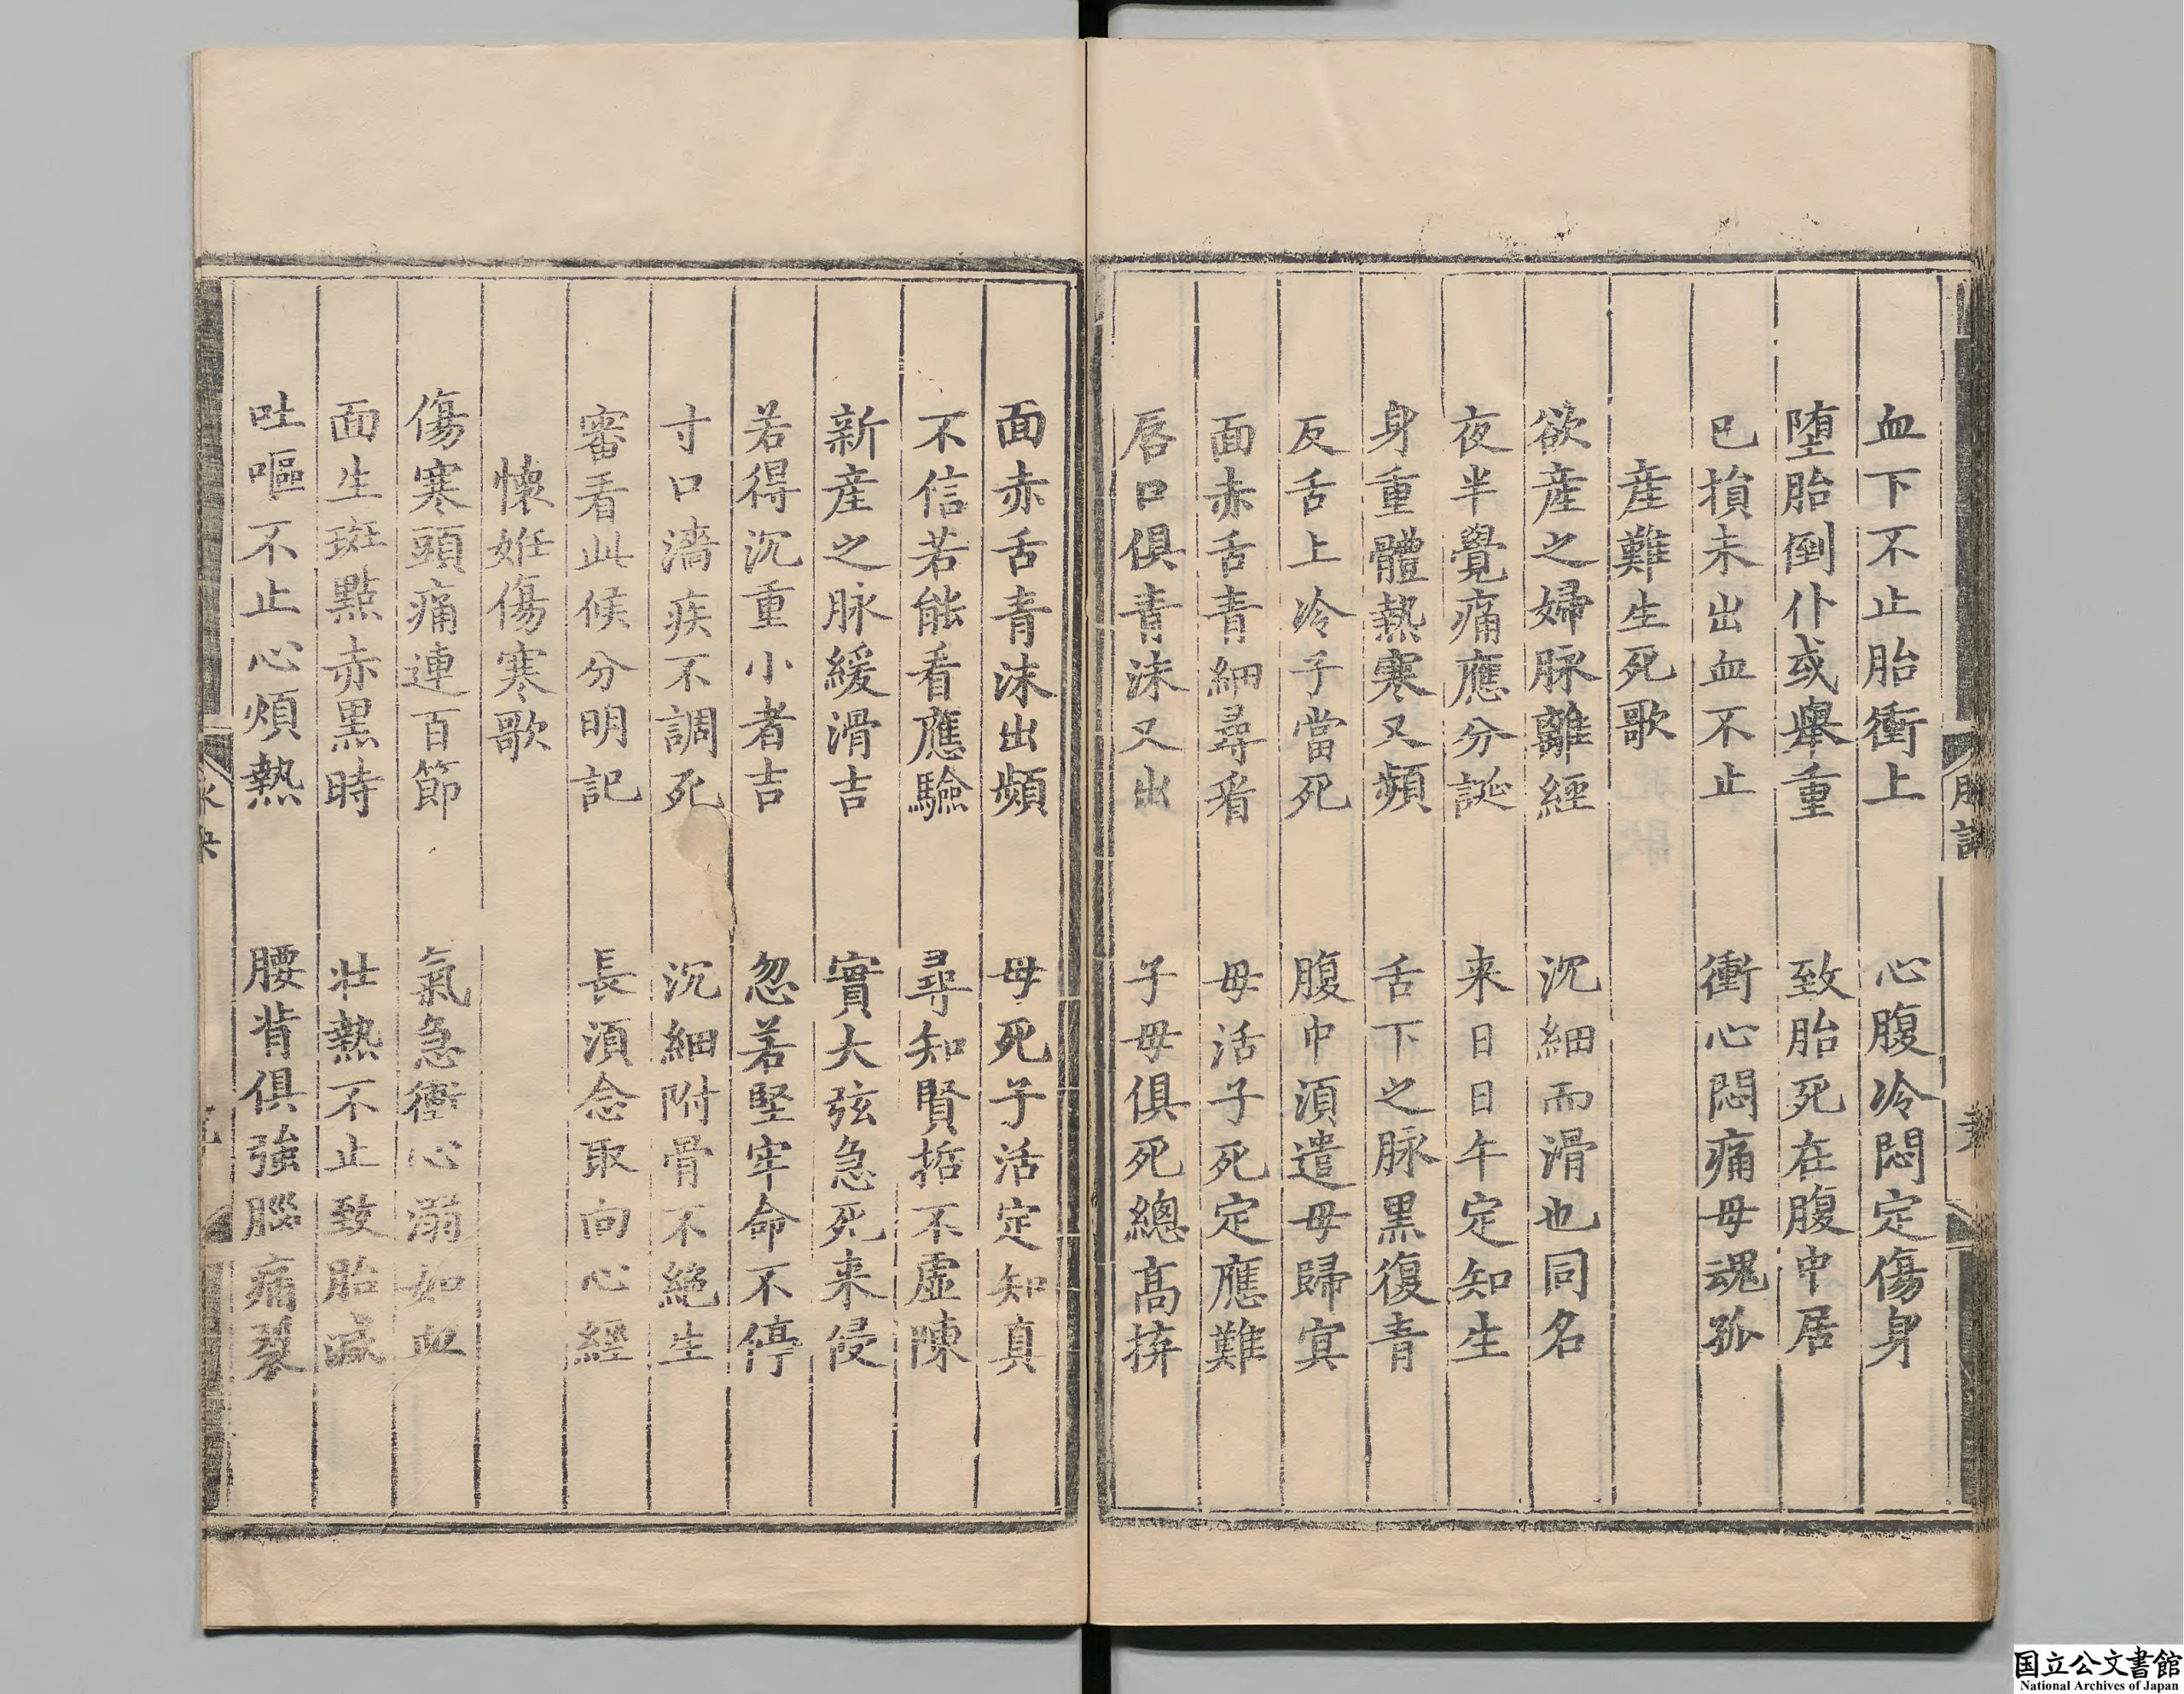 血下不止胎衝上　心腹冷悶定傷身
堕胎倒仆或舉重　致胎死在腹中居
已損未出血不止　衝心悶痛母魂孤
産難生死歌
欲産之婦脉離經　沉細而滑也同名
夜半覺痛應分誕　来日日午定知生
身重體熱寒又頻　舌下之脉黒復青
反舌上冷子當死　腹中須遣母歸冥
面赤舌青細尋看　母活子死定應難
唇口俱青沫又出　子母俱死總髙拚
面赤舌青沫出頻　母死子活定知真
不信若能看應驗　尋知賢哲不虚陳
新産之脉緩滑吉　實大弦急死来侵
若得沉重小者吉　忽若堅牢命不停
寸口濇疾不調死　沉細附骨不絶生
審看此候分明記　長須念取向心經
懐姙傷寒歌
傷寒頭痛連百節　氣急衝心溺如血
面生斑點赤黒時　壮熱不止致胎滅
吐嘔不止心煩熱　腰背俱強腦痛裂
国立公文書館
National Archives of Japan